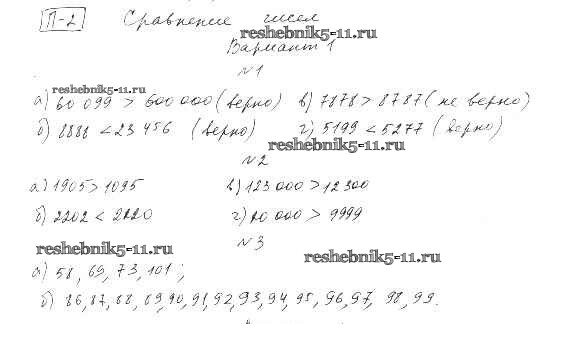 П-2 Сравнение чисел
reshebnik5-11.ru
Вариант 1
№1
reshebnik5-11.ru
а) 60 099 > 600 000 (верно) в) 7878 > 8787 (не верно)
б) 8888 < 23 456 (верно) г) 5199 < 5277 (верно)
reshebnik5-11.ru
№2
а) 1905 > 1095 в) 123 000 > 12 300
б) 2202 < 2220 г) 10 000 > 9999
№3
reshebnik5-11.ru reshebnik5-11.ru
а) 58, 69, 73, 101;
б) 86, 87, 88, 89, 90, 91, 92, 93, 94, 95, 96, 97, 98, 99.